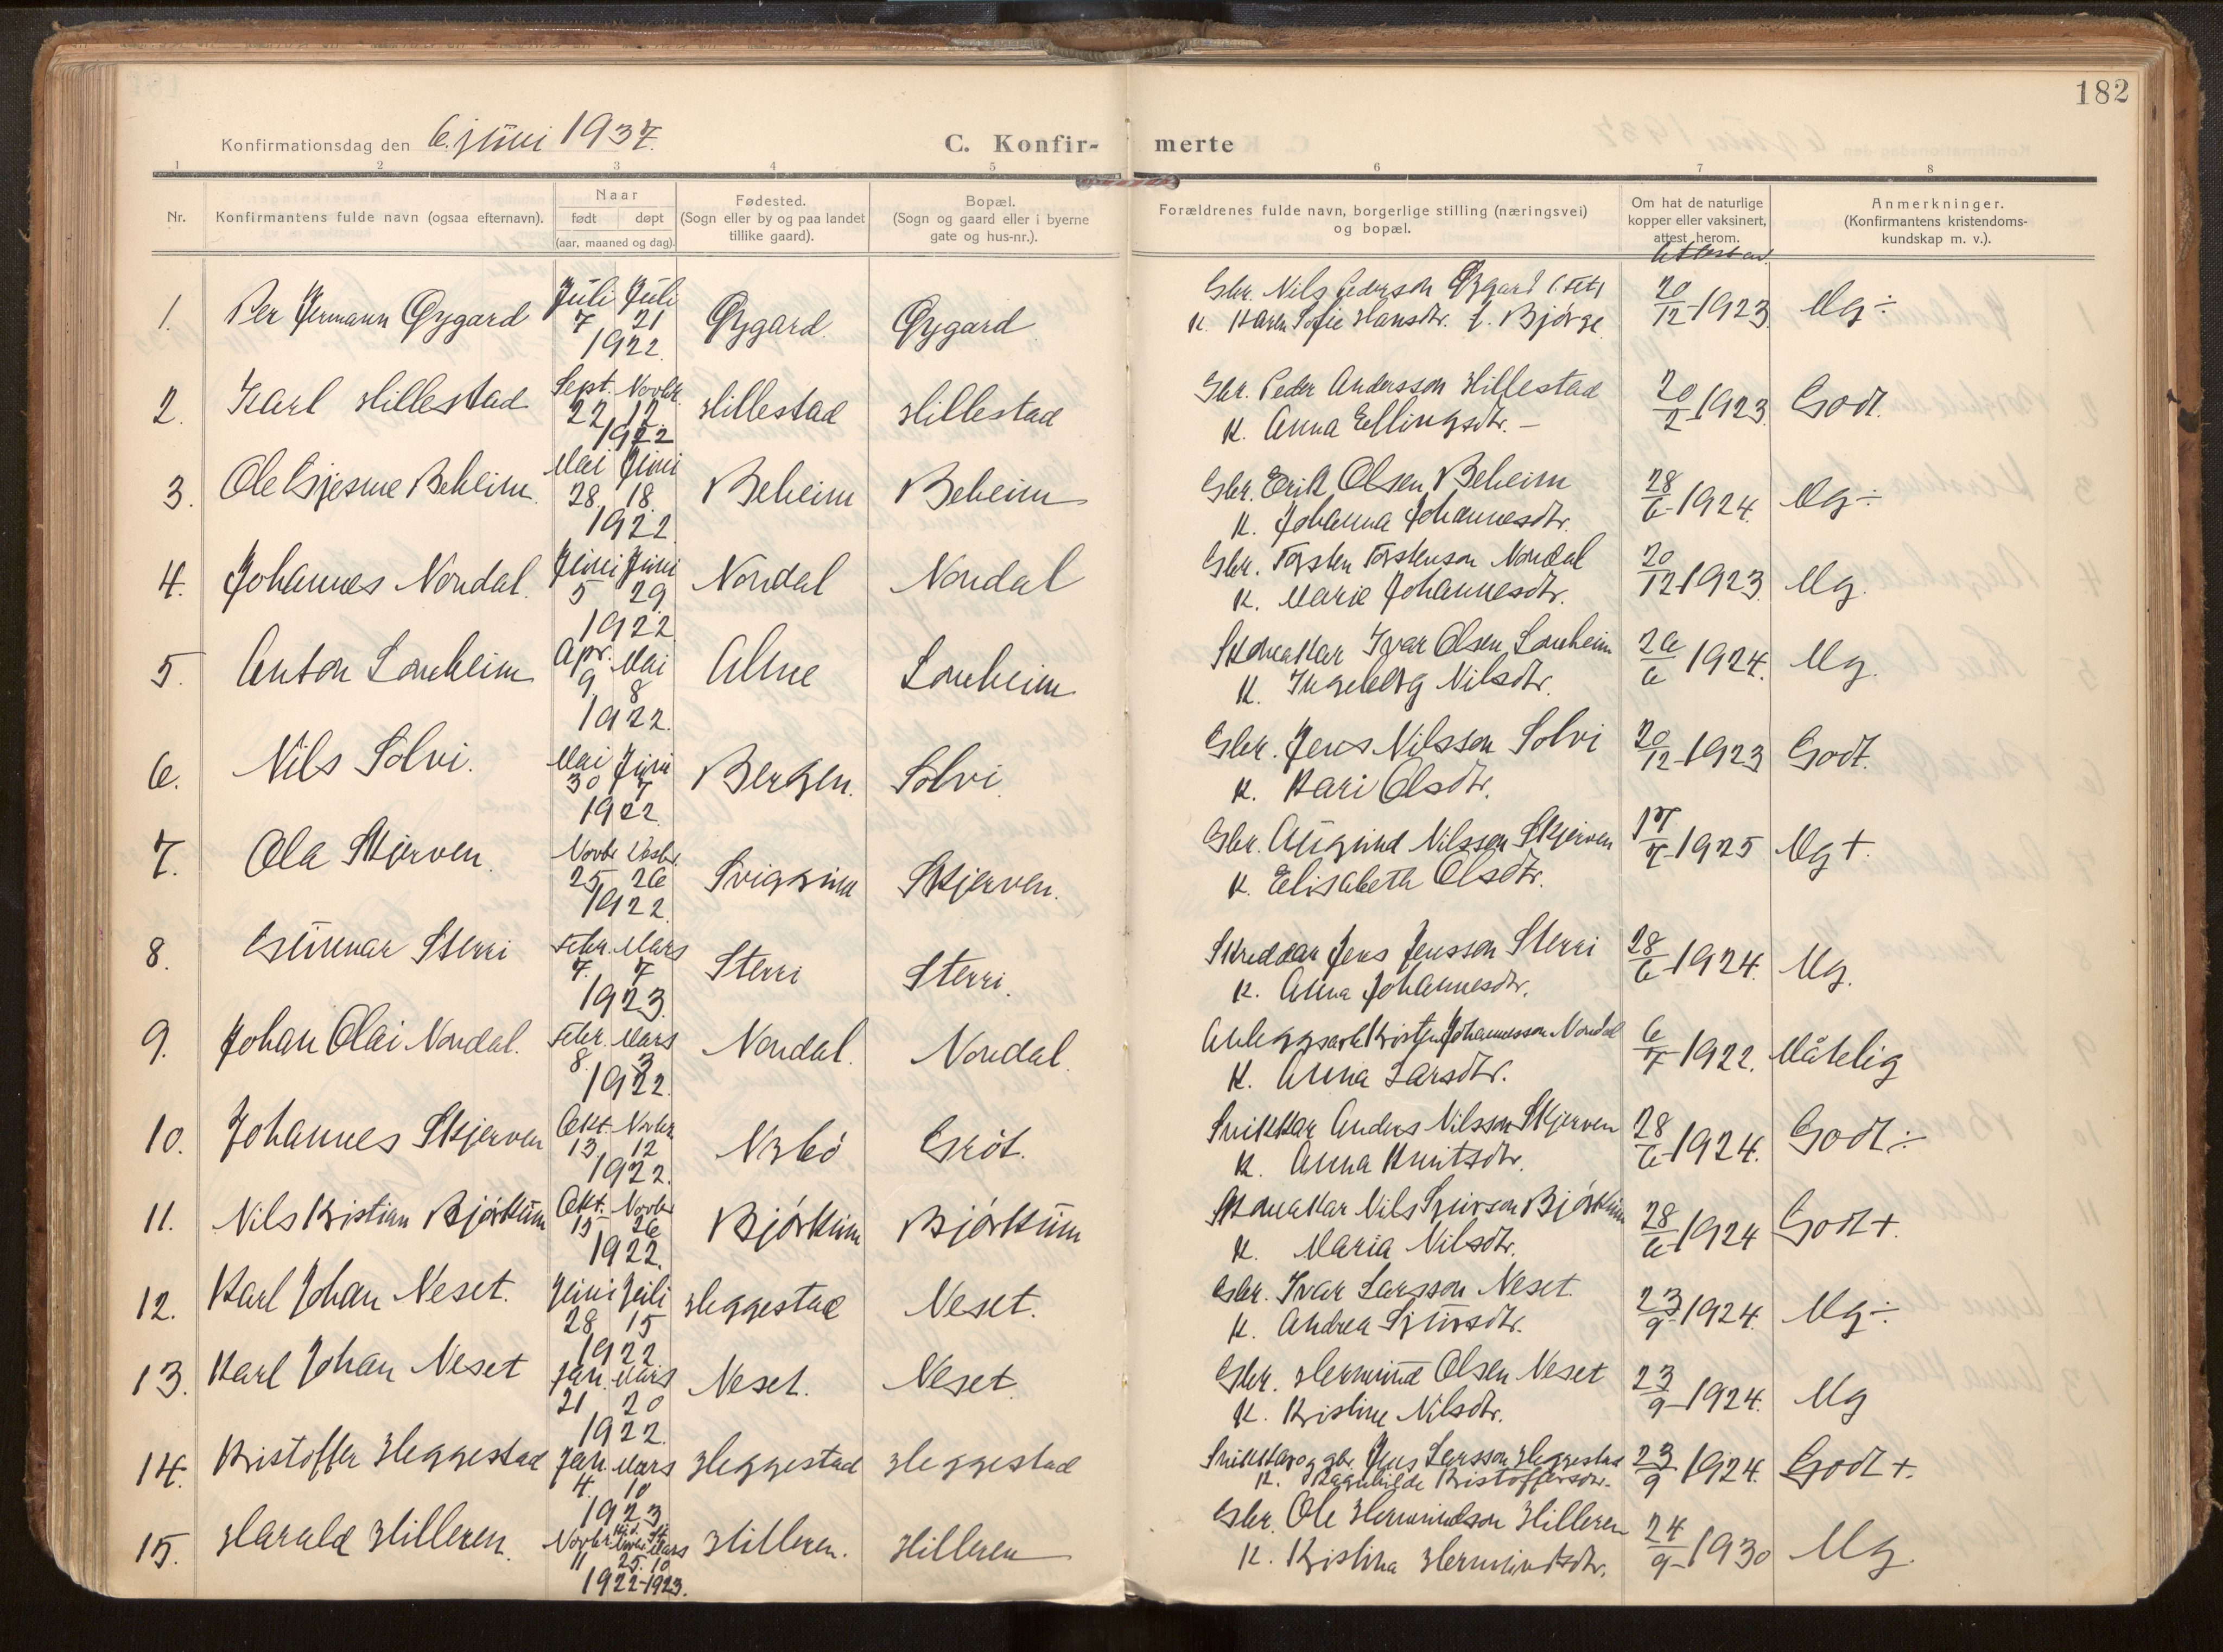 182
Konfirmationsdag den 6. juni 1937.
C. Konfir- merte
1 2 3 4 5 6 7 8
Nr.
Konfirmantens fulde navn (ogsaa efternavn).
Naar
født døpt
(aar, maaned og dag).
Fødested.
(Sogn eller by og paa landet
tillike gaard).
Bopæl.
(Sogn og gaard eller i byerne
gate og hus-nr.).
Forældrenes fulde navn, borgerlige stilling (næringsvei)
og bopæl.
Om hat de naturlige
kopper eller vaksinert,
attest herom.
Anmerkninger.
(Konfirmantens kristendoms-
kundskap m. v.).
1. Per Hermann Øygard Juli 7 Juli 21 1922. Øygard Øygard Gbr. Nils Pederson Øygard K. Karen Sofie Hansdtr. f. Bjørge 20/12-1923. Mg ÷
2. Karl Hillestad Sept. 22 Novbr. 12. 1922 Hillestad Hillestad Gbr. Peder Andersson Hillestad K. Anna Ellingsdtr. – 20/2-1923. Godt.
3. Ole Gjesme Beheim. Mai 28. Juni 18. 1922 Beheim Beheim Gbr. Erik Olsen Beheim K. Johanna Johannesdtr. 28/6-1924. Mg ÷
4. Johannes Nondal. Juni 5 Juni 29. 1922 Nondal Nondal Gbr. Torsten Torstenson Nondal K. Marie Johannesdtr. 20/12-1923. Mg.
5. Anton Lonheim Apr. 9 Mai 8 1922. Alme Lonheim Skomakar Ivar Olsen Lonheim K. Ingeborg Nilsdtr. 26/6 1924. Mg.
6. Nils Solvi. Mai 30 Juni 7 1922. Bergen. Solvi. Gbr. Jens Nilsson Solvi K. Kari Olsdtr. 20/12-1923 Godt.
7. Ola Skjerven. Novbr 25 Desbr. 26 1922. Sviggum Skjerven. Gbr. Augund Nilsson Skjerven K. Elisabeth Olsdtr. 17/7-1925 Mg +.
8. Gunnar Sterri Febr. 7. Mars 7 1923. Sterri Sterri. Skreddar Jens Jensson Sterri K. Anna Johannesdtr. 28/6-1924. Mg.
9. Johan Olai Nondal. Febr. 8. Mars 3 1922. Nondal. Nondal. Anleggsarb Kristen Johannesson Nondal K. Anna Larsdtr. 6/7-1922. Måtelig
10. Johannes Skjerven Okt. 13. Novbr 12 1922. Nybö Gröt. Snikkar Anders Nilsson Skjerven K. Anna Knutsdtr. 28/6-1924. Godt. ÷
11. Nils Kristian Björkum Okt. 15 Novbr 26 1922. Björkum Björkum Skomakar Nils Sjurson Björkum K. Maria Nilsdtr. 28/6-1924 Godt +.
12. Karl Johan Neset. Juni 28 Juli 15 1922 Heggestad Neset. Gbr. Ivar Larsson Neset. K. Andrea Sjursdtr. 23/9-1924. Mg ÷
13. Karl Johan Neset Jan. 21 Mars 20 1922. Neset. Neset. Gbr. Hermund Olsen Neset K. Kristine Nilsdtr. 23/9-1924. Mg
14. Kristoffer Heggestad Jan. 4. Mars 10 1923 Heggestad Heggestad Snikkar og gbr. Jens Larsson Heggestad K. Ragnhilde Kristoffersdtr. 23/9 1924. Godt +.
15. Harald Hilleren. Novbr 11 25. Mars 10 1922-1923. Hilleren. Hilleren Gbr. Ole Hermundson Hilleren K. Kristina Hermundsdtr. 24/9-1930 Mg.